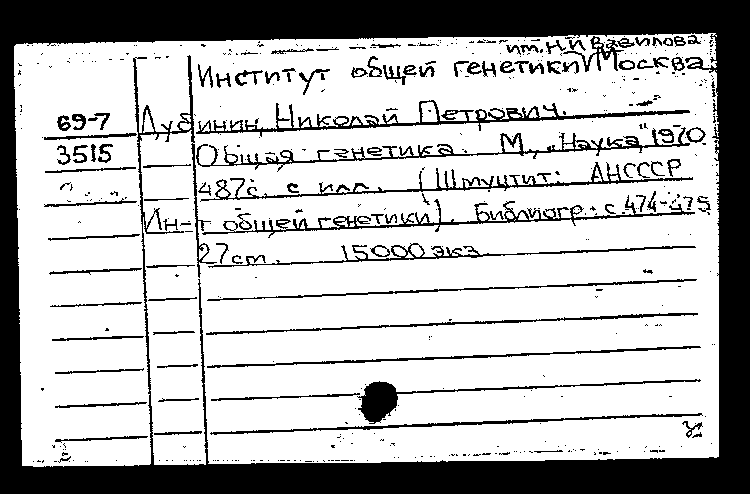 им. Н.И Вавилова
Институт общей генетики Москва
69-7 Дубинин, Николай Петрович.
3515 Общая генетика. М., „Наука", 1970.
487с. с илл. (Шмуцтит: АНСССР
Ин-т общей генетики). Библиогр.: с 474-475
27cm. 15000 экз